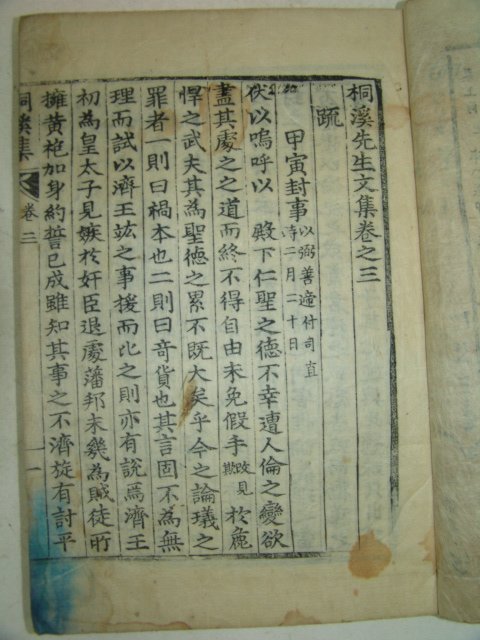 桐溪先生文集卷之三
疏
甲寅封事 以弼善遆付司直
時二月二十日
伏以嗚呼以 殿下仁聖之德不幸遭人倫之變欲
盡其處之之道而終不得自由未免假手 改見欺 於麁
悍之武夫其為聖德之累不既大矣乎今之論㼁之
罪者一則曰禍本也二則曰奇貨也其言固不為無
理而試以濟王竑之事援而比之則亦有說焉濟王
初為皇太子見嫉於奸臣退處藩邦未幾為賊徒所
擁黃袍加身約誓已成雖知其事之不濟旋有討平
桐溪集 卷三 一